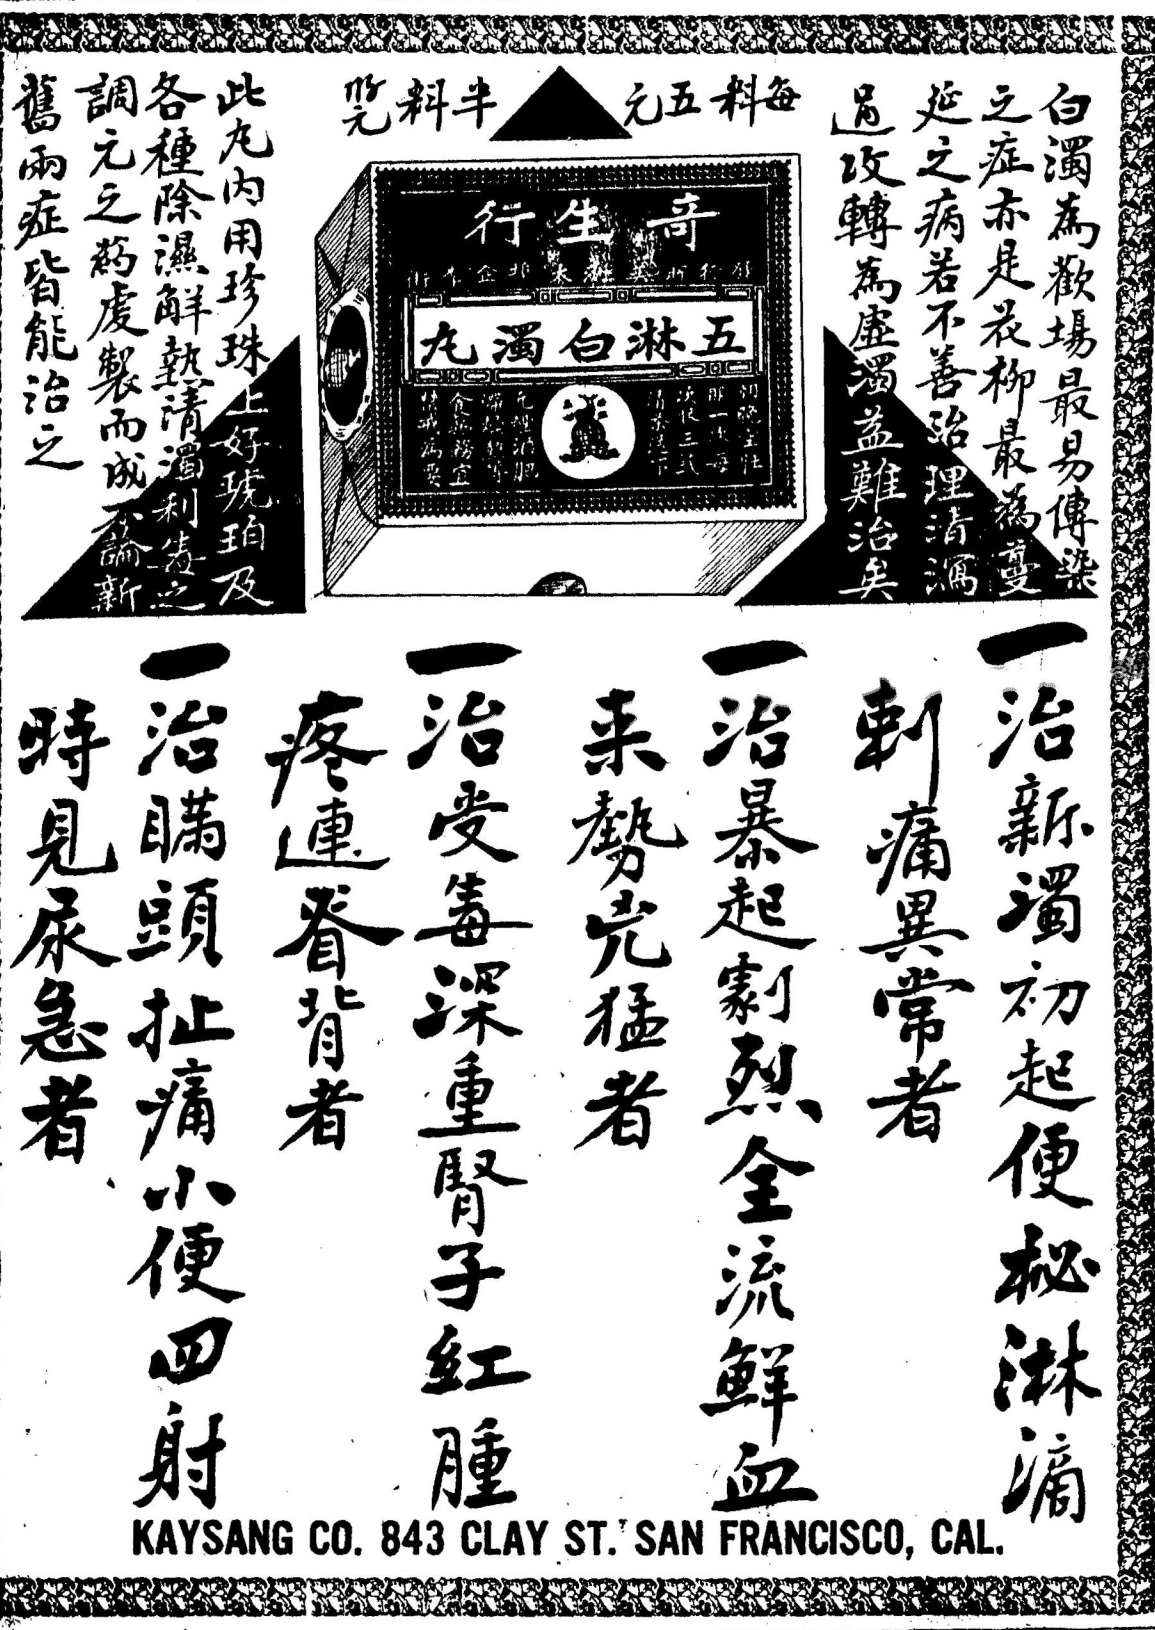 每料五元
半料
元
白濁為歡場最易傳染
之症亦是花柳最為蔓
延之病若不善治理清濁
過攻轉為虛濁益難治矣
奇生行
五淋白濁丸
此丸內用珍珠上好琥珀及
各種除濕解熱清濁利毒之
調元之药虔製而成不論新
舊兩症皆能治之
一治新濁初起便秘淋滴
刺痛異常者
一治暴起劇烈全流鮮血
来勢兇猛者
一治受毒深重腎子紅腫
疼連脊背者
一治瞞頭扯痛小便四射
時見尿急者
KAYSANG CO. 843 CLAY ST. SAN FRANCISCO, CAL.